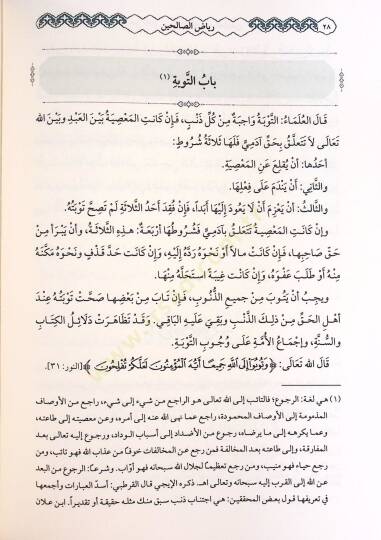 ٢٨
رياض الصالحين
بابُ التَّوبةِ (١)
قَالَ العُلَمَاءُ: التَّوْبَةُ وَاجِبَةٌ مِنْ كُلِّ ذَنْبٍ، فَإِنْ كَانَتِ المَعْصِيَةُ بَيْنَ العَبْدِ وبَيْنَ الله
تَعَالَى لَا تَتَعَلَّقُ بِحَقِّ آدَمِيٍّ فَلَهَا ثَلَاثَةُ شُرُوطٍ:
أَحَدُها: أَنْ يُقْلِعَ عَنِ المَعْصِيَةِ.
والثَّانِي: أَنْ يَنْدَمَ عَلَى فِعْلِهَا.
والثَّالثُ: أَنْ يَعْزِمَ أَنْ لَا يَعُودَ إِلَيْهَا أَبَداً، فَإِنْ فُقِدَ أَحَدُ الثَّلَاثَةِ لَمْ تَصِحَّ تَوْبَتُهُ.
وإِنْ كَانَتِ المَعْصِيةُ تَتَعَلَّقُ بآدَمِيٍّ فَشُرُوطُهَا أَرْبَعَةٌ: هـذِهِ الثَّلَاثَةُ، وأَنْ يَبْرَأَ مِنْ
حَقِّ صَاحِبِها، فَإِنْ كَانَتْ مالاً أَوْ نَحْوَهُ رَدَّهُ إِلَيْهِ، وإِنْ كَانَت حَدَّ قَذْفٍ ونَحْوَهُ مَكَّنَهُ
مِنْهُ أَوْ طَلَبَ عَفْوَهُ، وإِنْ كَانَتْ غِيبَةً استَحَلَّهُ مِنْهَا.
ويجِبُ أَنْ يَتُوبَ مِنْ جميعِ الذُّنُوبِ، فَإِنْ تابَ مِنْ بَعْضِها صَحَّتْ تَوْبَتُهُ عِنْدَ
أَهْلِ الحَقِّ مِنْ ذلِكَ الذَّنْبِ وبَقِيَ عَلَيهِ الباقي. وَقَدْ تَظَاهَرَتْ دَلائِلُ الكِتَابِ
والسُّنَّةِ، وإِجْمَاعُ الأُمَّةِ عَلَى وُجُوبِ التَّوْبَةِ.
قَالَ الله تَعَالَى: ﴿وَتُوبُوٓاْ إِلَى ٱللَّهِ جَمِيعًا أَيُّهَ ٱلْمُؤْمِنُونَ لَعَلَّكُمْ تُفْلِحُونَ﴾ [النور: ٣١].
(١) هي لغة: الرجوع؛ فالتائب إلى الله تعالى هو الراجع من شيء إلى شيء، راجع من الأوصاف
المذمومة إلى الأوصاف المحمودة، راجع عما نهى الله عنه إلى أمره، وعن معصيته إلى طاعته،
وعما يكرهه إلى ما يرضاه، رجوع من الأضداد إلى أسباب الوداد، ورجوع إليه تعالى بعد
المفارقة، وإلى طاعته بعد المخالفة فمن رجع عن المخالفات خوفاً من عذاب الله فهو تائب، ومن
رجع حياء فهو منيب، ومن رجع تعظيماً لجلال الله سبحانه فهو أواب. وشرعاً: الرجوع من البعد
عن الله إلى القرب إليه سبحانه وتعالى اهـ. ذكره الإيجي قال القرطبي: أسدّ العبارات وأجمعها
في تعريفها قول بعض المحققين: هي اجتناب ذنب سبق منك مثله حقيقة أو تقديراً. ابن علان